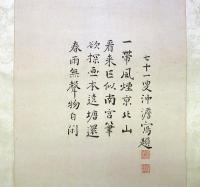 七十一叟沖澹寫題
一帶風煙京北山
看來巨似南宮筆
欲探画本遠塘還
春雨無聲物自閑